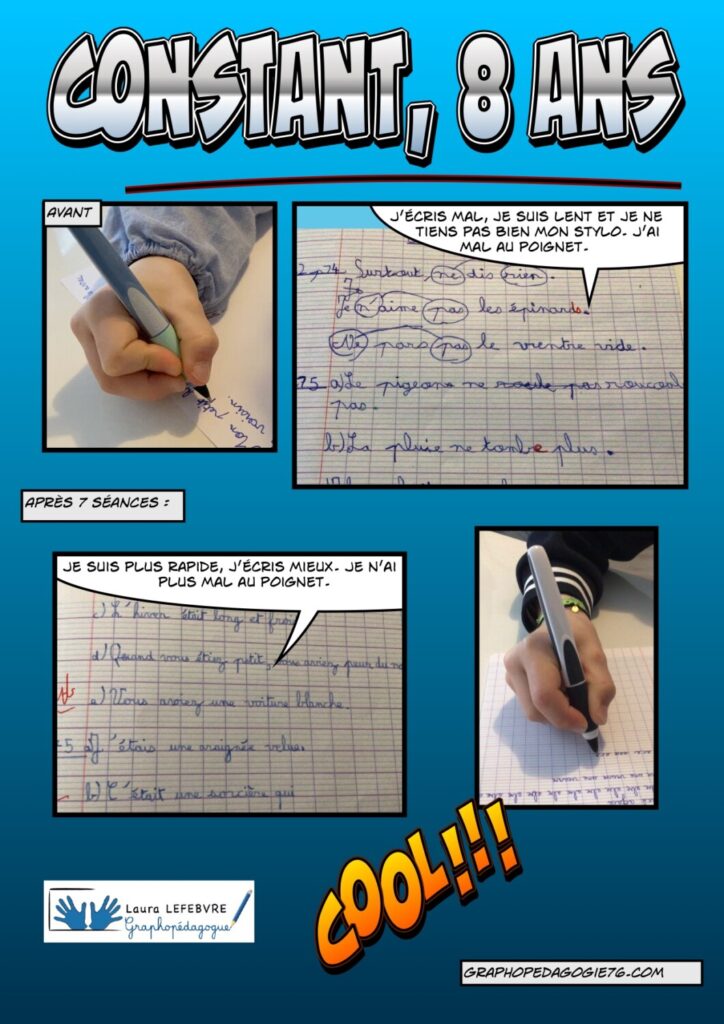 CONSTANT, 8 ANS
AVANT
Mon petit
voisin.
J'ÉCRIS MAL, JE SUIS LENT ET JE NE
TIENS PAS BIEN MON STYLO. J'AI
MAL AU POIGNET.
2 p74 Surtout, ne dis rien.
Je n'aime pas les épinards.
Ne pars pas le ventre vide.
75 a) Le pigeons ne roule pas roucoul
pas.
b) La pluie ne tombe plus.
APRÈS 7 SÉANCES :
JE SUIS PLUS RAPIDE, J'ÉCRIS MIEUX. JE N'AI
PLUS MAL AU POIGNET.
c) L'hiver était long et froi
d) Quand vous étiez petit, vous aviez peur du no
e) Vous aviez une voiture blanche.
5 a) J'étais une araignée velue.
b) C'était une sorcière qui
COOL!!!
Laura LEFEBVRE
Graphopédagogue
GRAPHOPEDAGOGIE76.COM